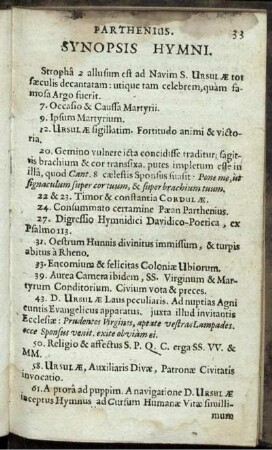 PARTHENIUS. 33
SYNOPSIS HYMNI.
Strophâ 2 allusum est ad Navim S. URSULÆ tot
sæculis decantatam: utique tam celebrem, quàm fa-
mosa Argo fuerit.
7. Occasio & Caussa Martyrii.
9. Ipsum Martyrium.
12. URSULÆ sigillatim. Fortitudo animi & victo-
ria.
20. Gemino vulnere icta concidisse traditur; sagit-
tis brachium & cor transfixa. putes impletum esse in
illâ, quod Cant. 8 cælestis Sponsus suasit: Pone me, ut
signaculum super cor tuum, & super brachium tuum.
22 & 23. Timor & constantia CORDULÆ.
24. Consummato certamine Pæan Parthenius.
27. Digressio Hymnidici Davidico-Poetica, ex
Psalmo 113.
31. Oestrum Hunnis divinitus immissum, & turpis
abitus à Rheno.
33. Encomium & felicitas Coloniæ Ubiorum.
39. Aurea Camera ibidem, SS. Virginum & Mar-
tyrum Conditorium. Civium vota & preces.
43. D. URSULÆ Laus peculiaris. Ad nuptias Agni
euntis Evangelicus apparatus. juxta illud invitantis
Ecclesiæ: Prudentes Virgines, aptate vestras Lampades.
ecce Sponsus venit. exite obviàm ei.
50. Religio & affectus S. P. Q. C. erga SS. VV. &
MM.
58. URSULÆ, Auxiliaris Divæ, Patronæ Civitatis
invocatio.
61. A prorâ ad puppim. A navigatione D. URSULÆ
inceptus Hymnus ad Cursum Humanæ Vitæ simillì-
mum